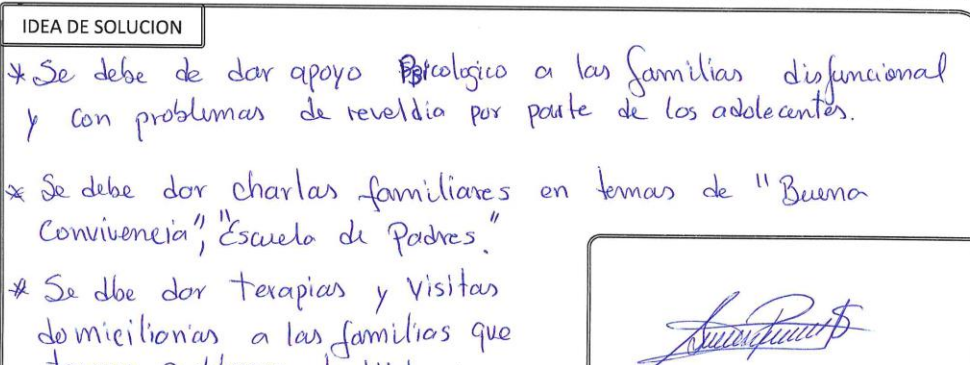 IDEA DE SOLUCION
* Se debe de dar apoyo Psicologico a las familias disfuncional
y con problemas de reveldia por parte de los adolecentes.
* Se debe dar charlas familiares en temas de "Buena
Convivencia", "Escuela de Padres."
* Se dbe dar terapias y visitas
domiciliarias a las familias que